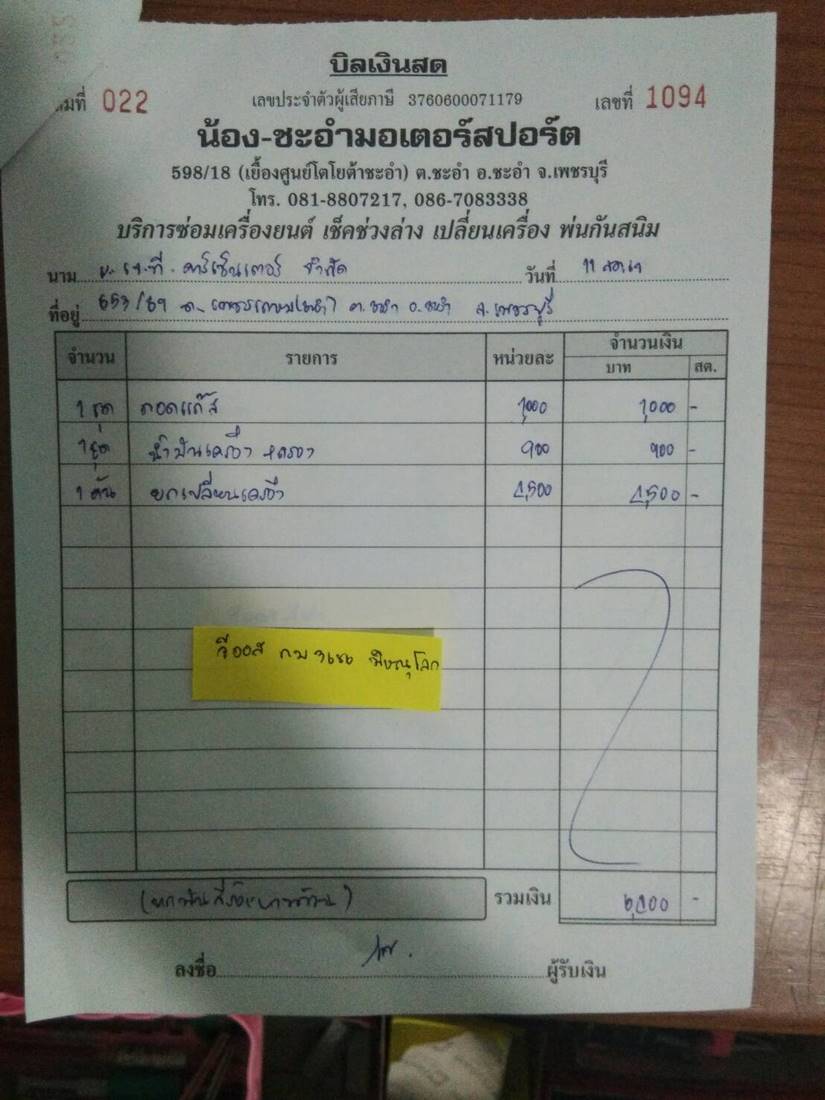 บิลเงินสด
มที่ 022 เลขประจำตัวผู้เสียภาษี 3760600071179 เลขที่ 1094
น้อง-ชะอำมอเตอร์สปอร์ต
598/18 (เยื้องศูนย์โตโยต้าชะอำ) ต.ชะอำ อ.ชะอำ จ.เพชรบุรี
โทร. 081-8807217, 086-7083338
บริการซ่อมเครื่องยนต์ เช็คช่วงล่าง เปลี่ยนเครื่อง พ่นกันสนิม
นาม คาร์เซ็นเตอร์ จำกัด วันที่ 11
ที่อยู่ 653/69 ต.ชะอำ อ.ชะอำ จ.เพชรบุรี
จำนวน รายการ หน่วยละ จำนวนเงิน
บาท สต.
1 ชุด ถอดแก๊ส 1,000 1,000 -
1 ชุด น้ำมันเครื่อง กรอง 900 900 -
1 คัน ยกเปลี่ยนเครื่อง 4,500 4,500 -
วีออส กม พิษณุโลก
รวมเงิน -
ลงชื่อ ผู้รับเงิน